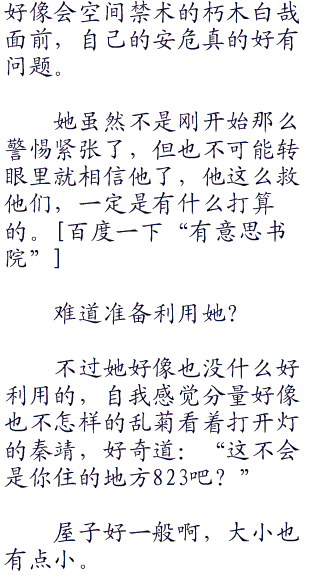 好像会空间禁术的朽木白哉
面前，自己的安危真的好有
问题。
她虽然不是刚开始那么
警惕紧张了，但也不可能转
眼里就相信他了，他这么救
他们，一定是有什么打算
的。[百度一下“有意思书
院”]
难道准备利用她？
不过她好像也没什么好
利用的，自我感觉分量好像
也不怎样的乱菊看着打开灯
的秦靖，好奇道：“这不会
是你住的地方823吧？”
屋子好一般啊，大小也
有点小。